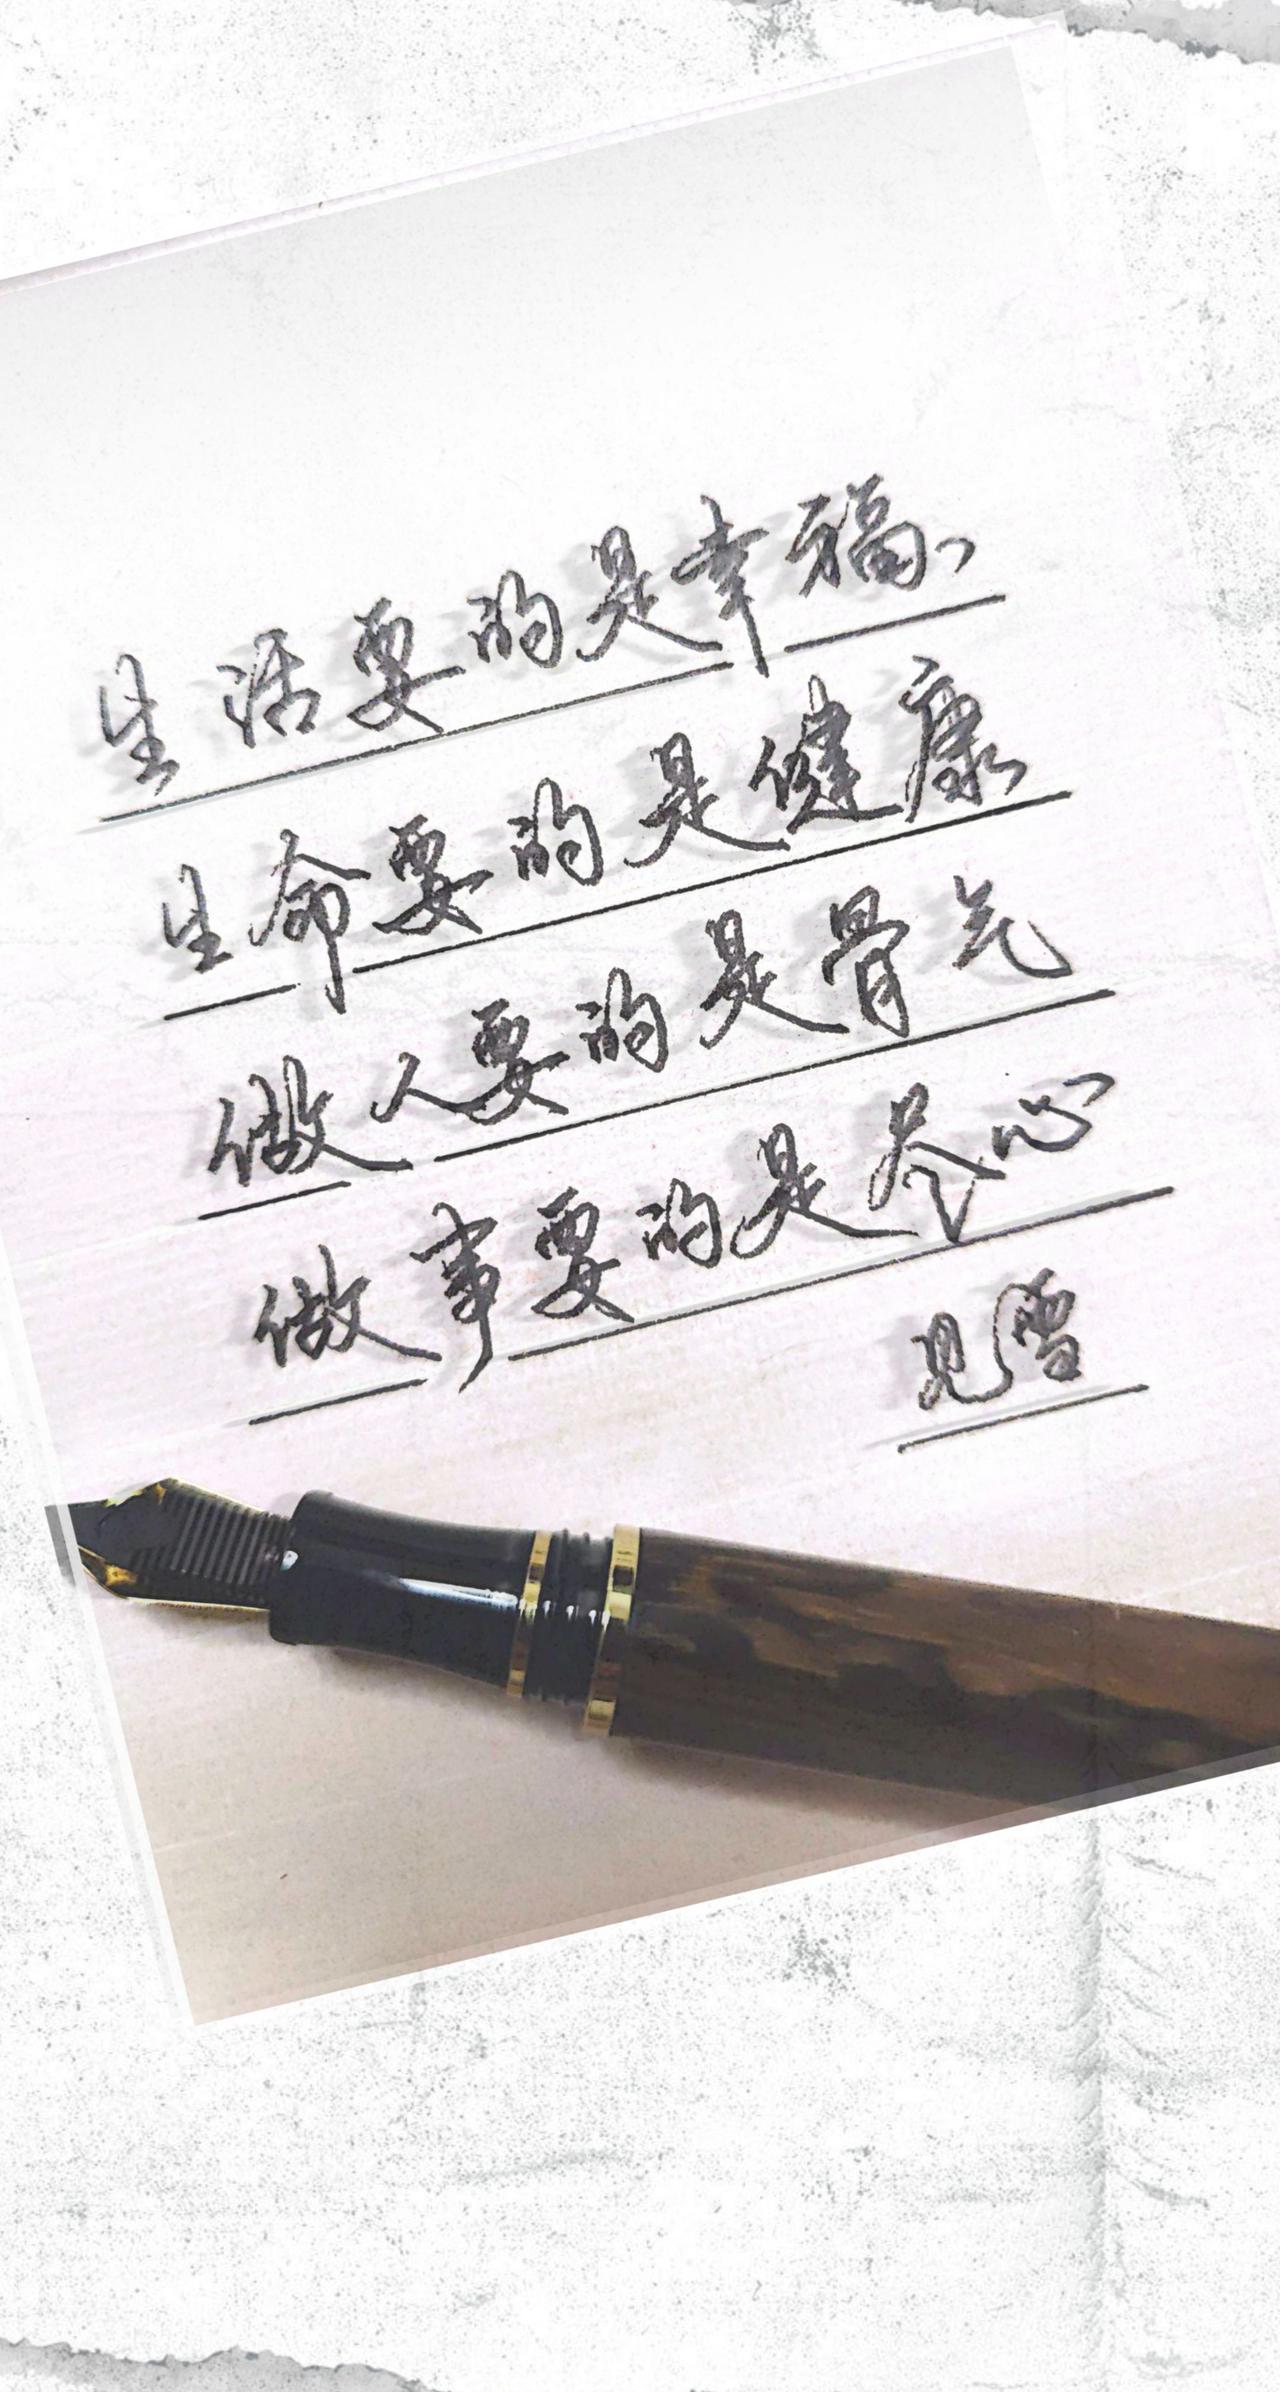 生活要的是幸福、
生命要的是健康
做人要的是骨气
做事要的是尽心
见雪